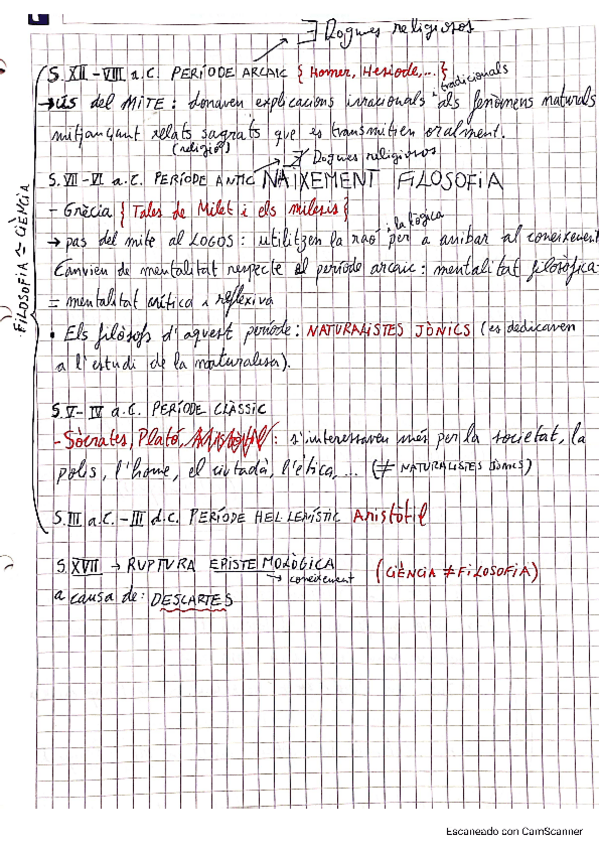 ∃ Dogmes religiosos
S. XII - VIII a.C. PERÍODE ARCAIC { Homer, Hesíode,... }
→ ÚS del MITE : donaven explicacions irracionals i tradicionals als fenòmens naturals
mitjançant relats sagrats que es transmitien oralment.
(religió)
∄ Dogmes religiosos
S. VII - VI a.C. PERÍODE ANTIC NAIXEMENT FILOSOFIA
- Grècia { Tales de Milet i els milesis }
→ pas del mite al LOGOS : utilitzen la raó i la lògica per a arribar al coneixement
Canvien de mentalitat respecte al període arcaic : mentalitat filosòfica
= mentalitat crítica i reflexiva
• Els filòsofs d'aquest període : NATURALISTES JÒNICS (es dedicaven
a l'estudi de la naturalesa).
S. V - IV a.C. PERÍODE CLÀSSIC
- Sòcrates, Plató, Aristòtil : s'interessaven més per la societat, la
polis, l'home, el ciutadà, l'ètica, ... (≠ NATURALISTES JÒNICS)
S. III a.C. - III d.C. PERÍODE HEL·LENÍSTIC Aristòtil
FILOSOFIA = CIÈNCIA
S. XVII → RUPTURA EPISTEMOLÒGICA (CIÈNCIA ≠ FILOSOFIA)
→ coneixement
a causa de : DESCARTES
Escaneado con CamScanner